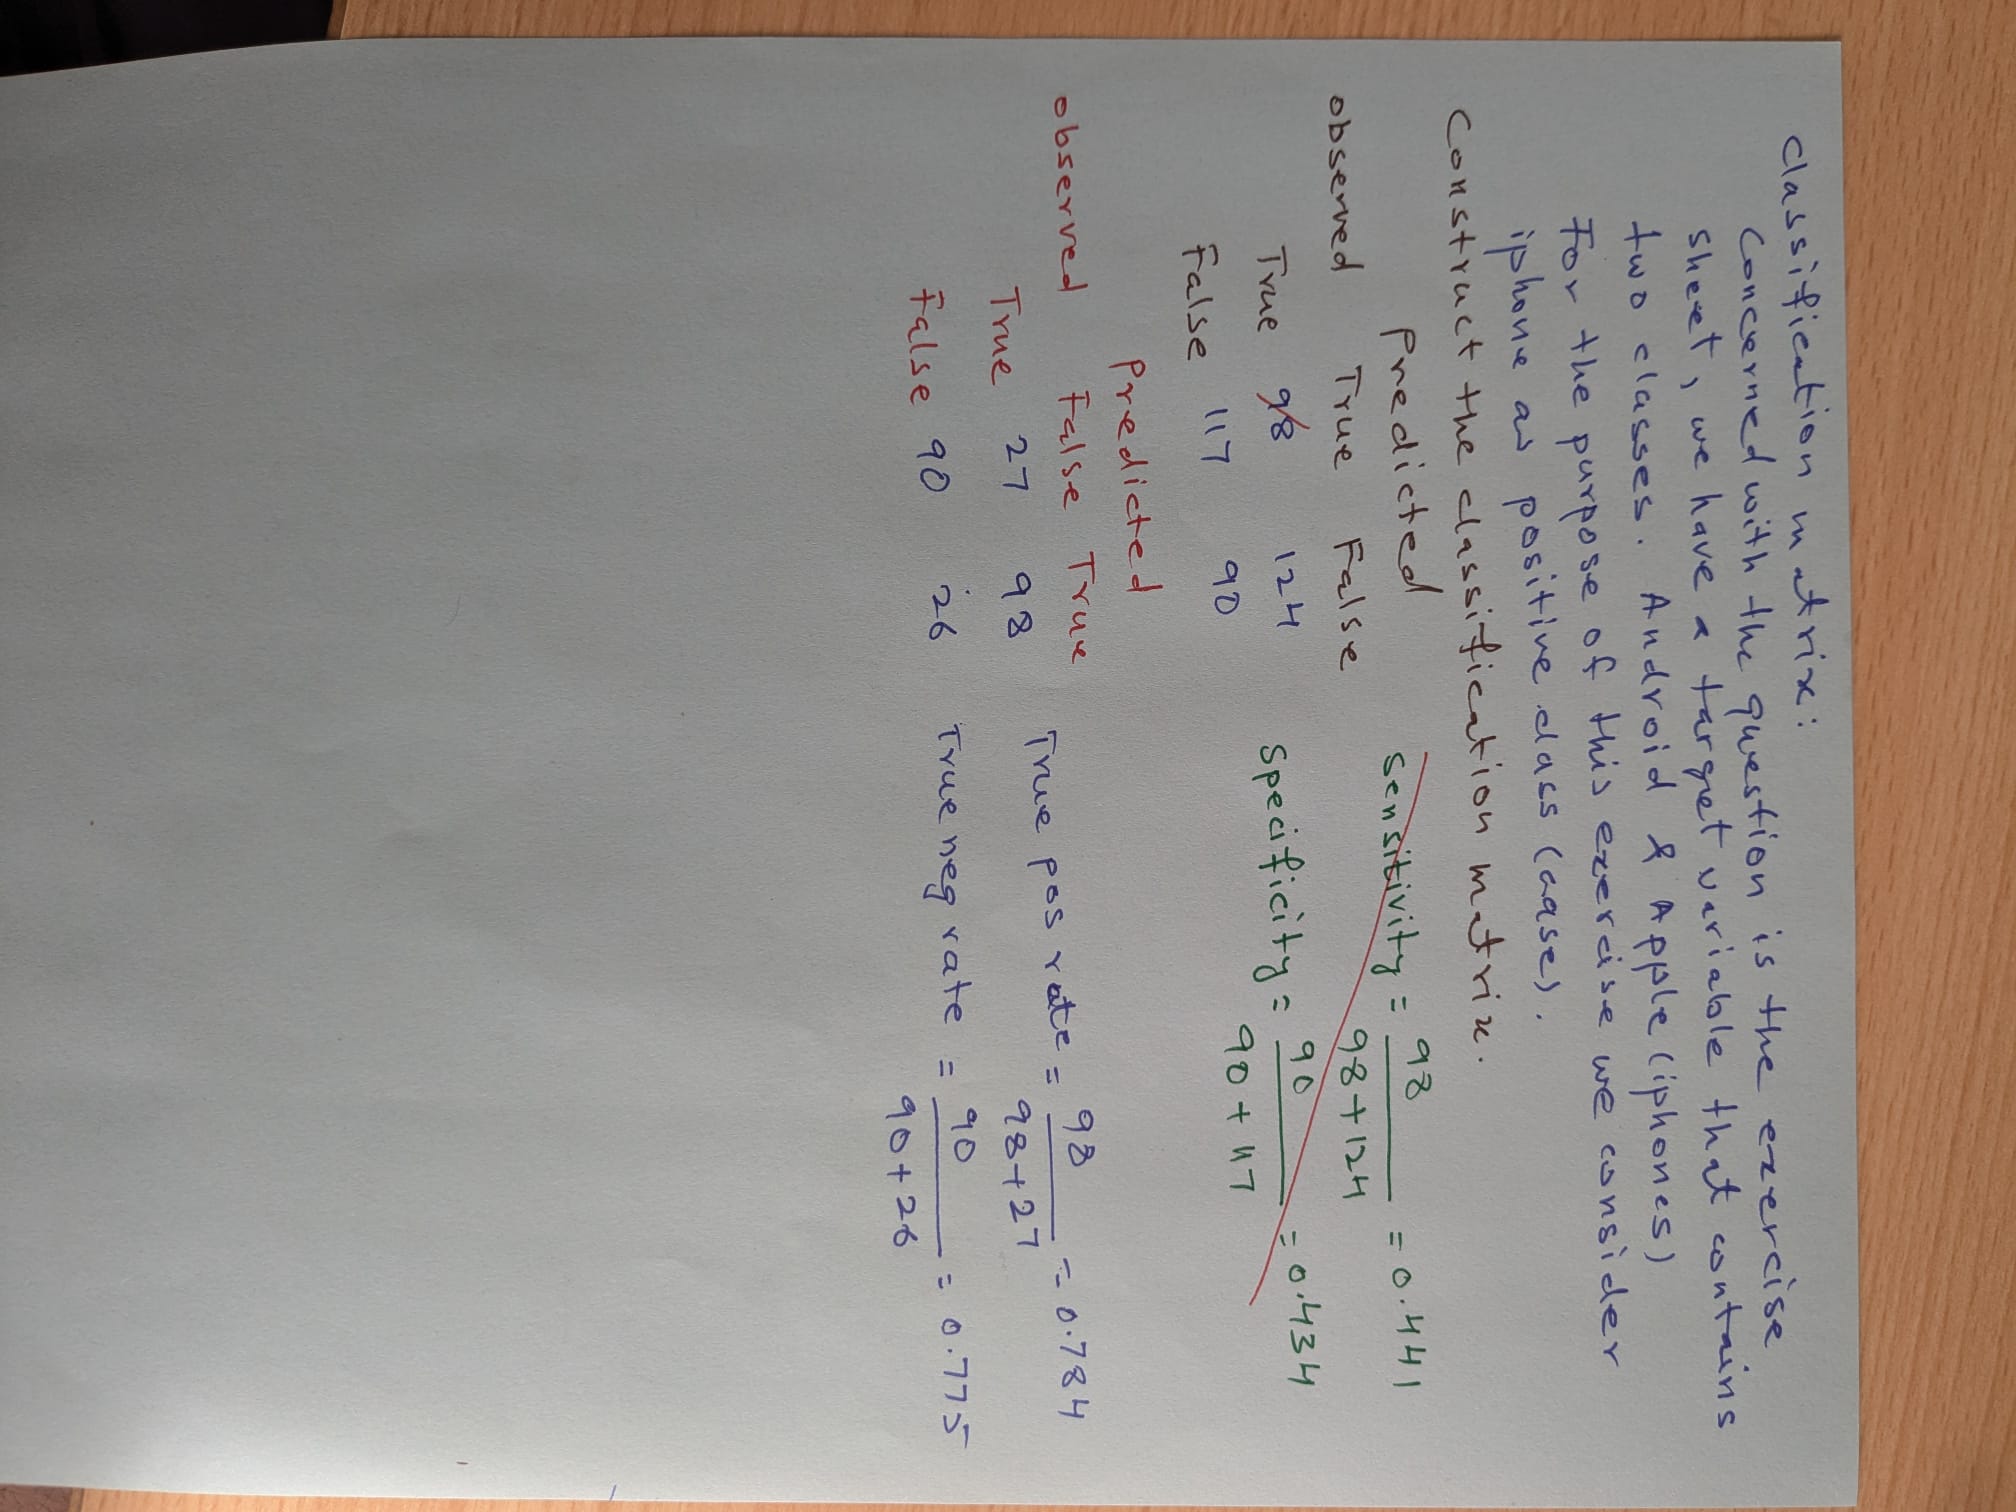 Classification matrix:
Concerned with the question is the exercise
sheet, we have a target variable that contains
two classes. Android & Apple (iphones)
For the purpose of this exercise we consider
iphone as positive class (case).
Construct the classification matrix.
Predicted
observed True False
True 98 124
False 117 90
Sensitivity = 98 / 98+124 = 0.441
Specificity = 90 / 90+117 = 0.434
Predicted
observed False True
True 27 98
False 90 26
True pos rate = 98 / 98+27 = 0.784
True neg rate = 90 / 90+26 = 0.775